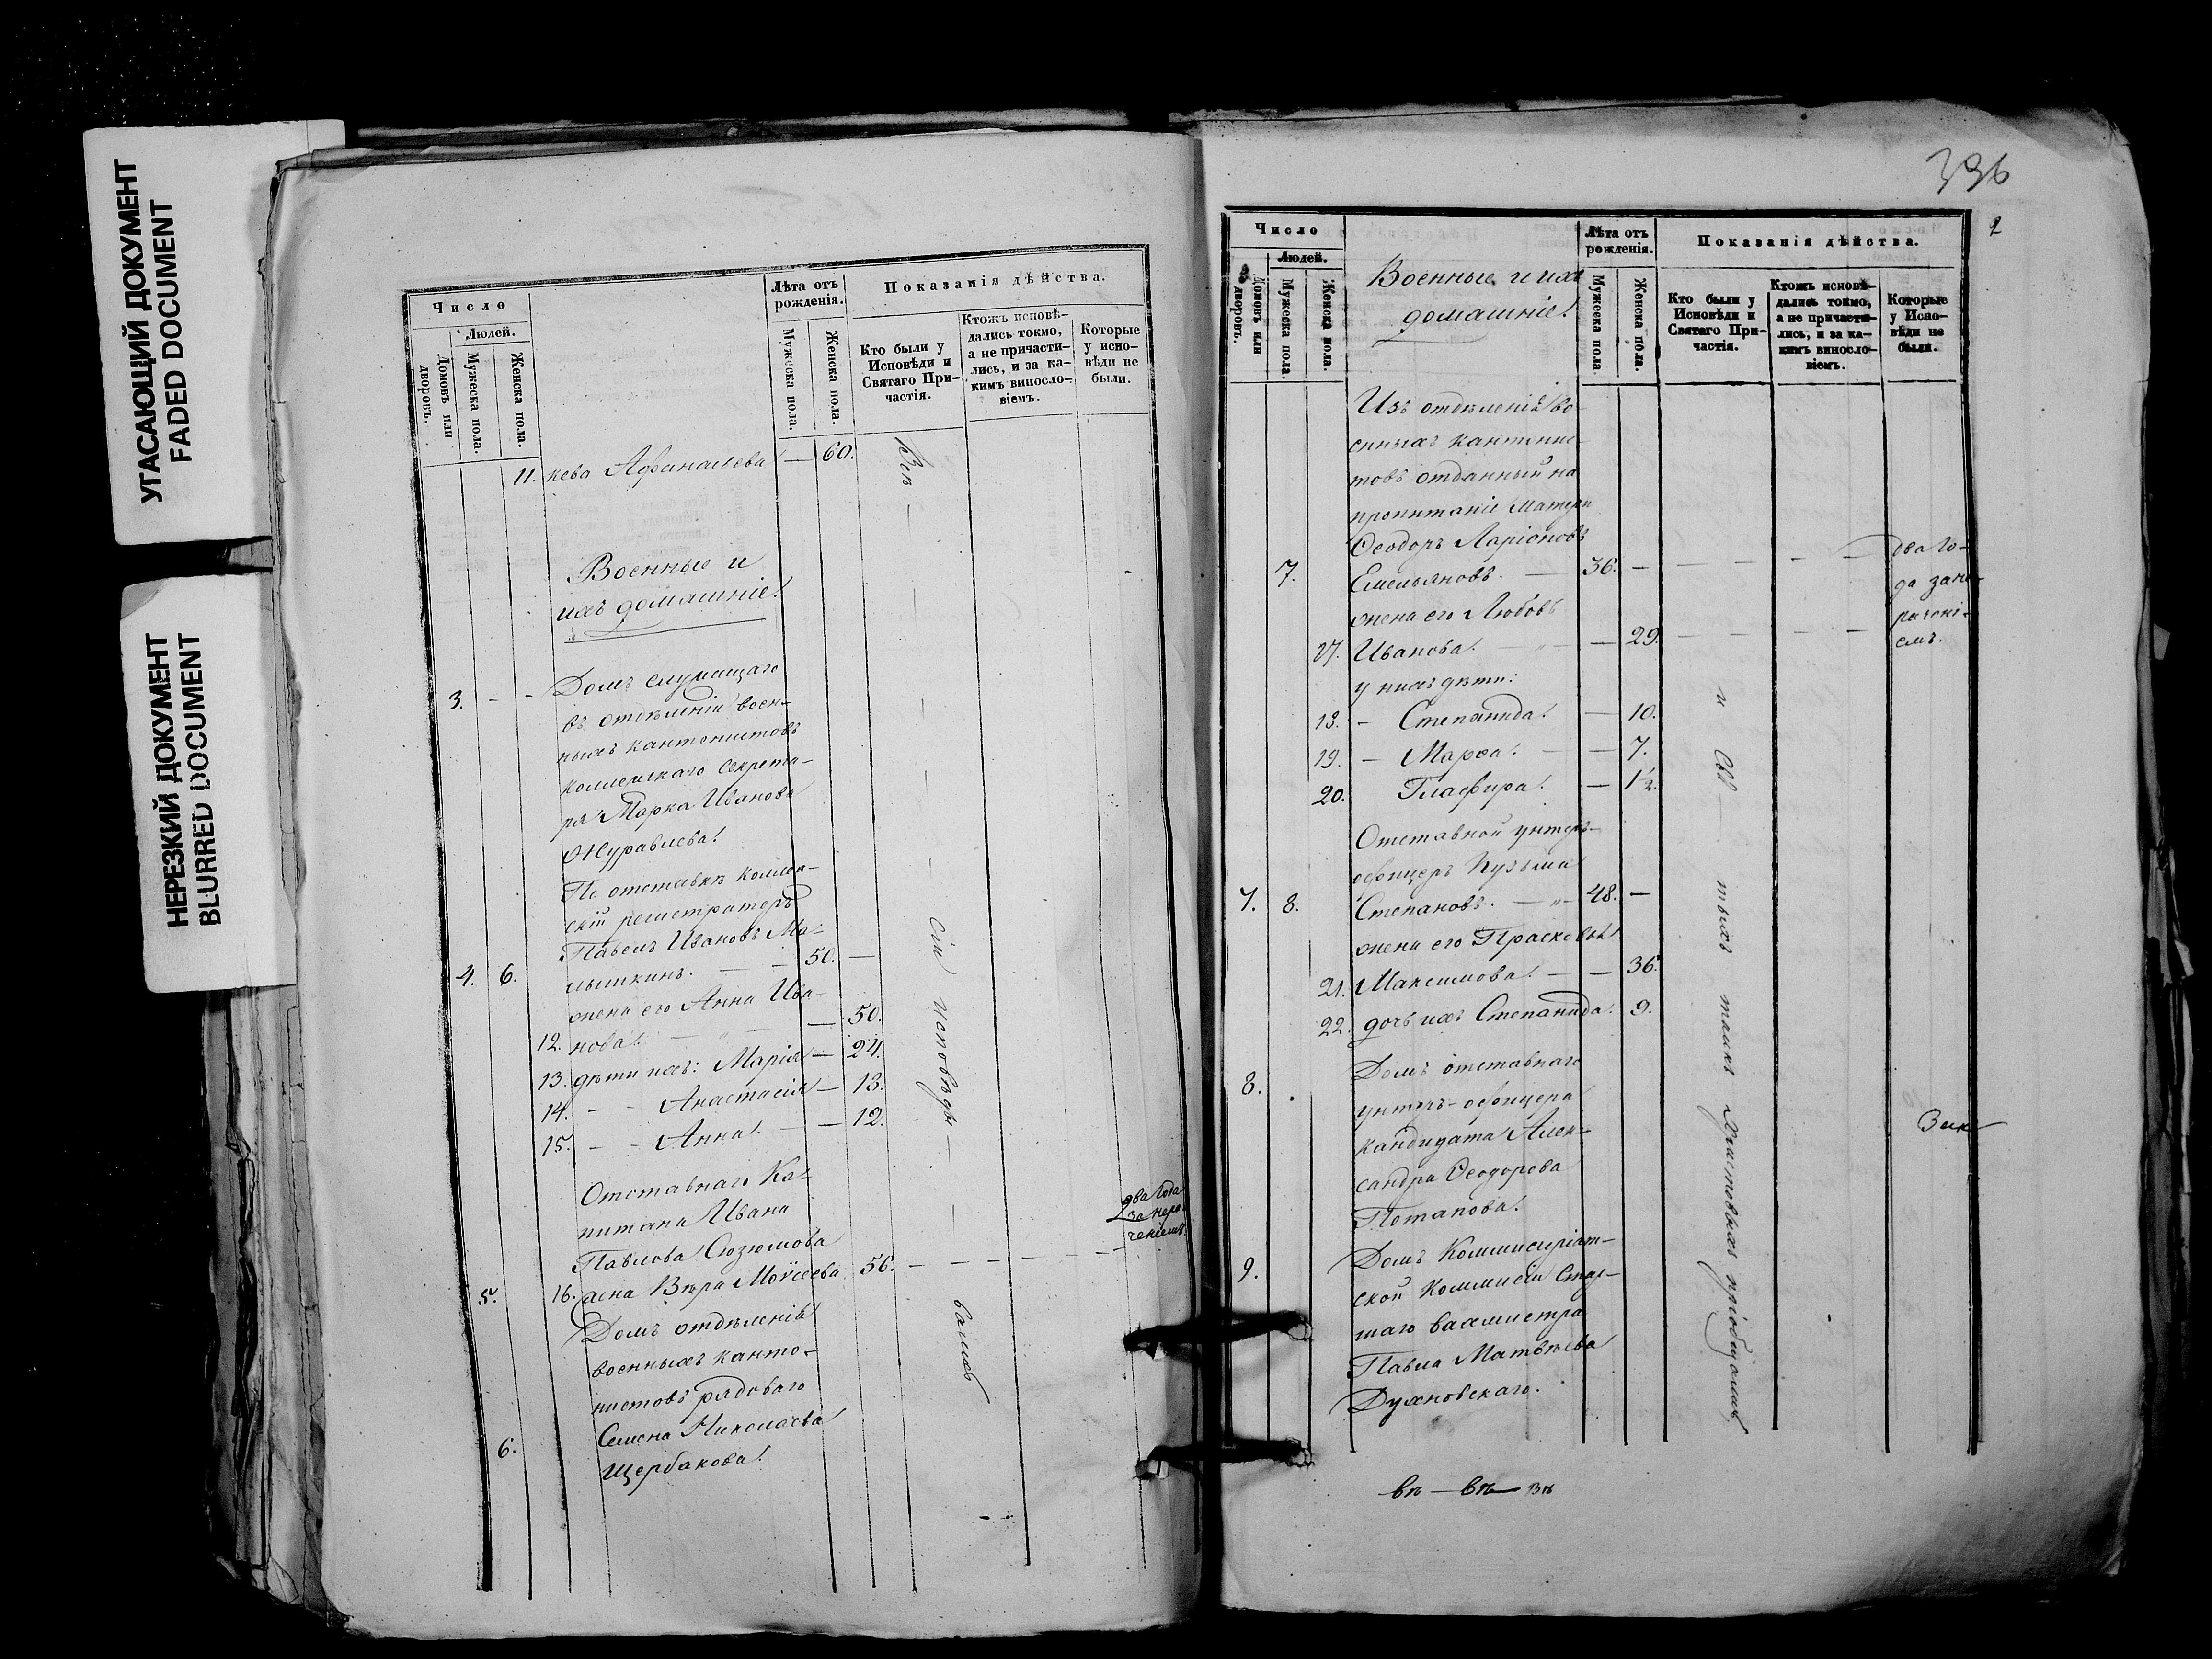 УГАСАЮЩИЙ ДОКУМЕНТ
FADED DOCUMENT
НЕРЕЗКИЙ ДОКУМЕНТ
BLURRED DOCUMENT
Число
Людей.
Домовъ или дворовъ.
Мужеска пола.
Женска пола.
Лѣта отъ рожденія.
Мужеска пола.
Женска пола.
Показанія дѣйства.
Кто были у Исповѣди и Святаго При-
частія.
Ктожъ исповѣ-
дались токмо,
а не причасти-
лись, и за ка-
кимъ винносло-
віемъ.
Которые
у испо-
вѣди не
были.
11. кева Афанасьева — 60.
Всѣ
Военные и
ихъ домашніе
3. - - Домъ служащаго
въ отдѣленіи воен-
ныхъ кантонистовъ
коллежскаго секрета-
ря Марка Иванова
Журавлева
По отставкѣ коллеж-
скій регистраторъ
Павелъ Ивановъ Ма-
4. 6. лышкинъ. — 50. —
жена его Анна Ива-
12. нова — 50.
13. дѣти ихъ: Марія — 24.
14. - - Анастасія — 13.
15. - - Анна — 12.
сіи исповѣди —
Отставнаго Ка-
питана Ивана
Павлова Сюзюмова
5. 16. жена Вѣра Моѵсеева 56. — — —
два года
за нера-
ченіемъ
Домъ отдѣленія
военныхъ канто-
нистовъ рядоваго
Семена Николаева
6. Щербакова
396
2
Число
Людей.
Домовъ или дворовъ.
Мужеска пола.
Женска пола.
Военные и ихъ
домашніе
Лѣта отъ
рожденія.
Мужеска пола.
Женска пола.
Показанія дѣйства.
Кто были у
Исповѣди и
Святаго При-
частія.
Ктожъ исповѣ-
дались токмо,
а не причасти-
лись, и за ка-
кимъ виносло-
віемъ.
Которые
у Испо-
вѣди не
были.
Изъ отдѣленія во-
енныхъ кантонис-
товъ отданный на
пропитаніе матери
Ѳеодоръ Ларіоновъ
7. Емельяновъ. — 36. — — — — —
жена его Любовь
27. Иванова — — 29. — — — —
два го-
да за не-
раченi-
емъ.
у нихъ дѣти:
18. - Степанида — 10.
19. - Марѳа — 7.
20. Глафира — 1½.
Отставной унтеръ-
офицеръ Кузьма
7. 8. Степановъ. — 48. —
жена его Прасковья
21. Максимова — — 36.
22. дочь ихъ Степанида 9.
8. Домъ отставнаго
унтеръ-офицера
кандидата Алек-
сандра Ѳеодорова
Потапова
9. Домъ Коммисаріат-
ской Коммисіи Стар-
шаго вахмистра
Павла Матвѣева
Духновскаго.
и Свя — тыхъ таинъ Христовыхъ пріобщались
вѣ — вѣ — вѣ